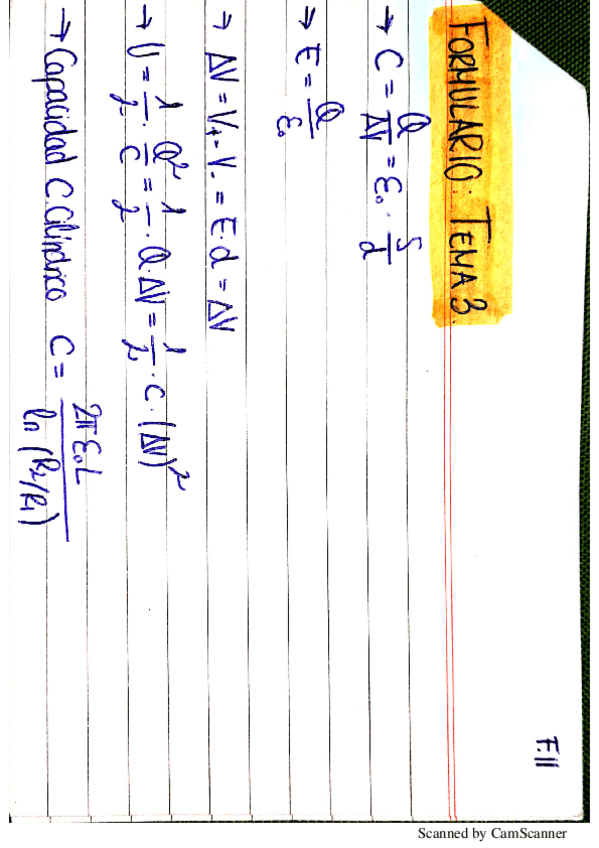 F.II
FORMULARIO: TEMA 3.
→ C = Q/ΔV = ε₀ · S/d
→ E = Q/ε₀
→ ΔV = V₊ - V₋ = E·d = ΔV
→ U = 1/2 · Q²/C = 1/2 · Q·ΔV = 1/2 · C · (ΔV)²
→ Capacidad C.Cilíndrico C = 2πε₀L / ln (R₂/R₁)
Scanned by CamScanner